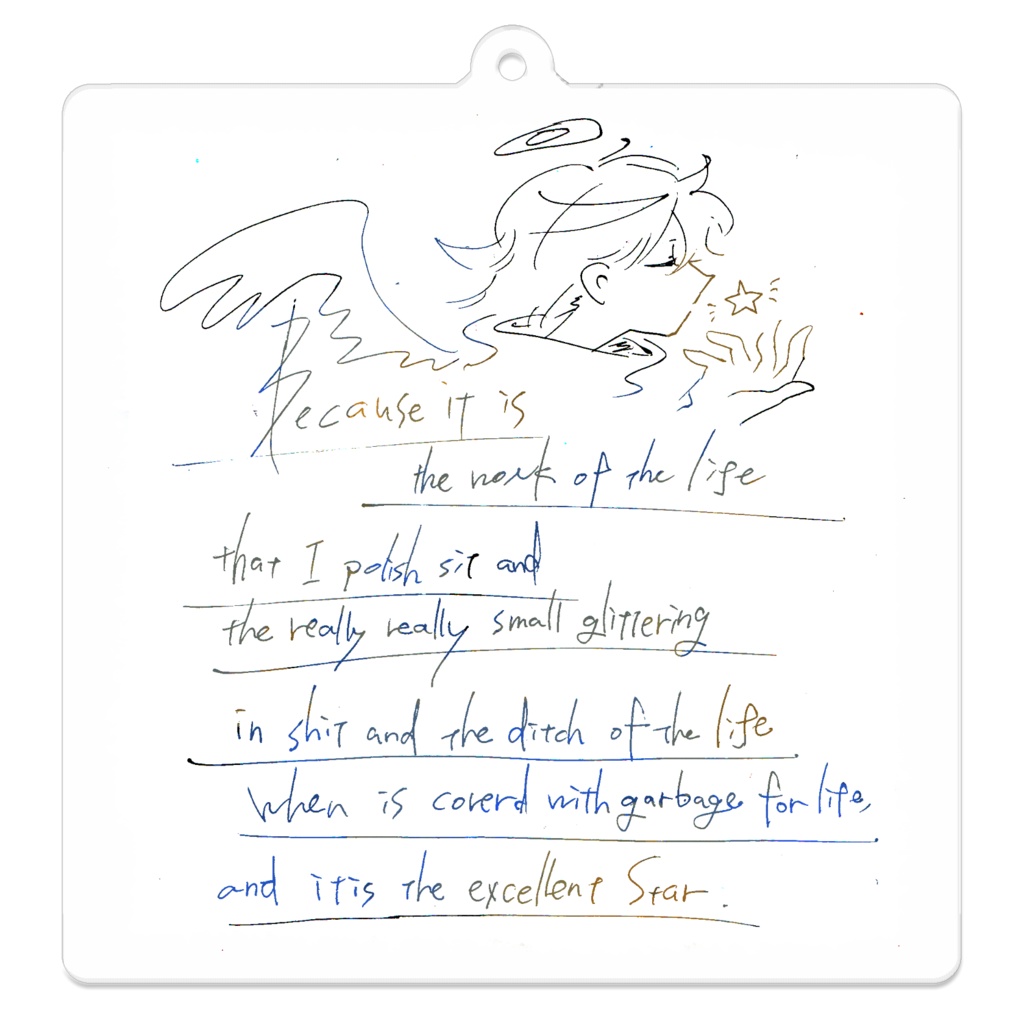 Because it is
the work of the life
that I polish sit and
the really really small glittering
in shit and the ditch of the life
when is coverd with garbage for life,
and it is the excellent Star.